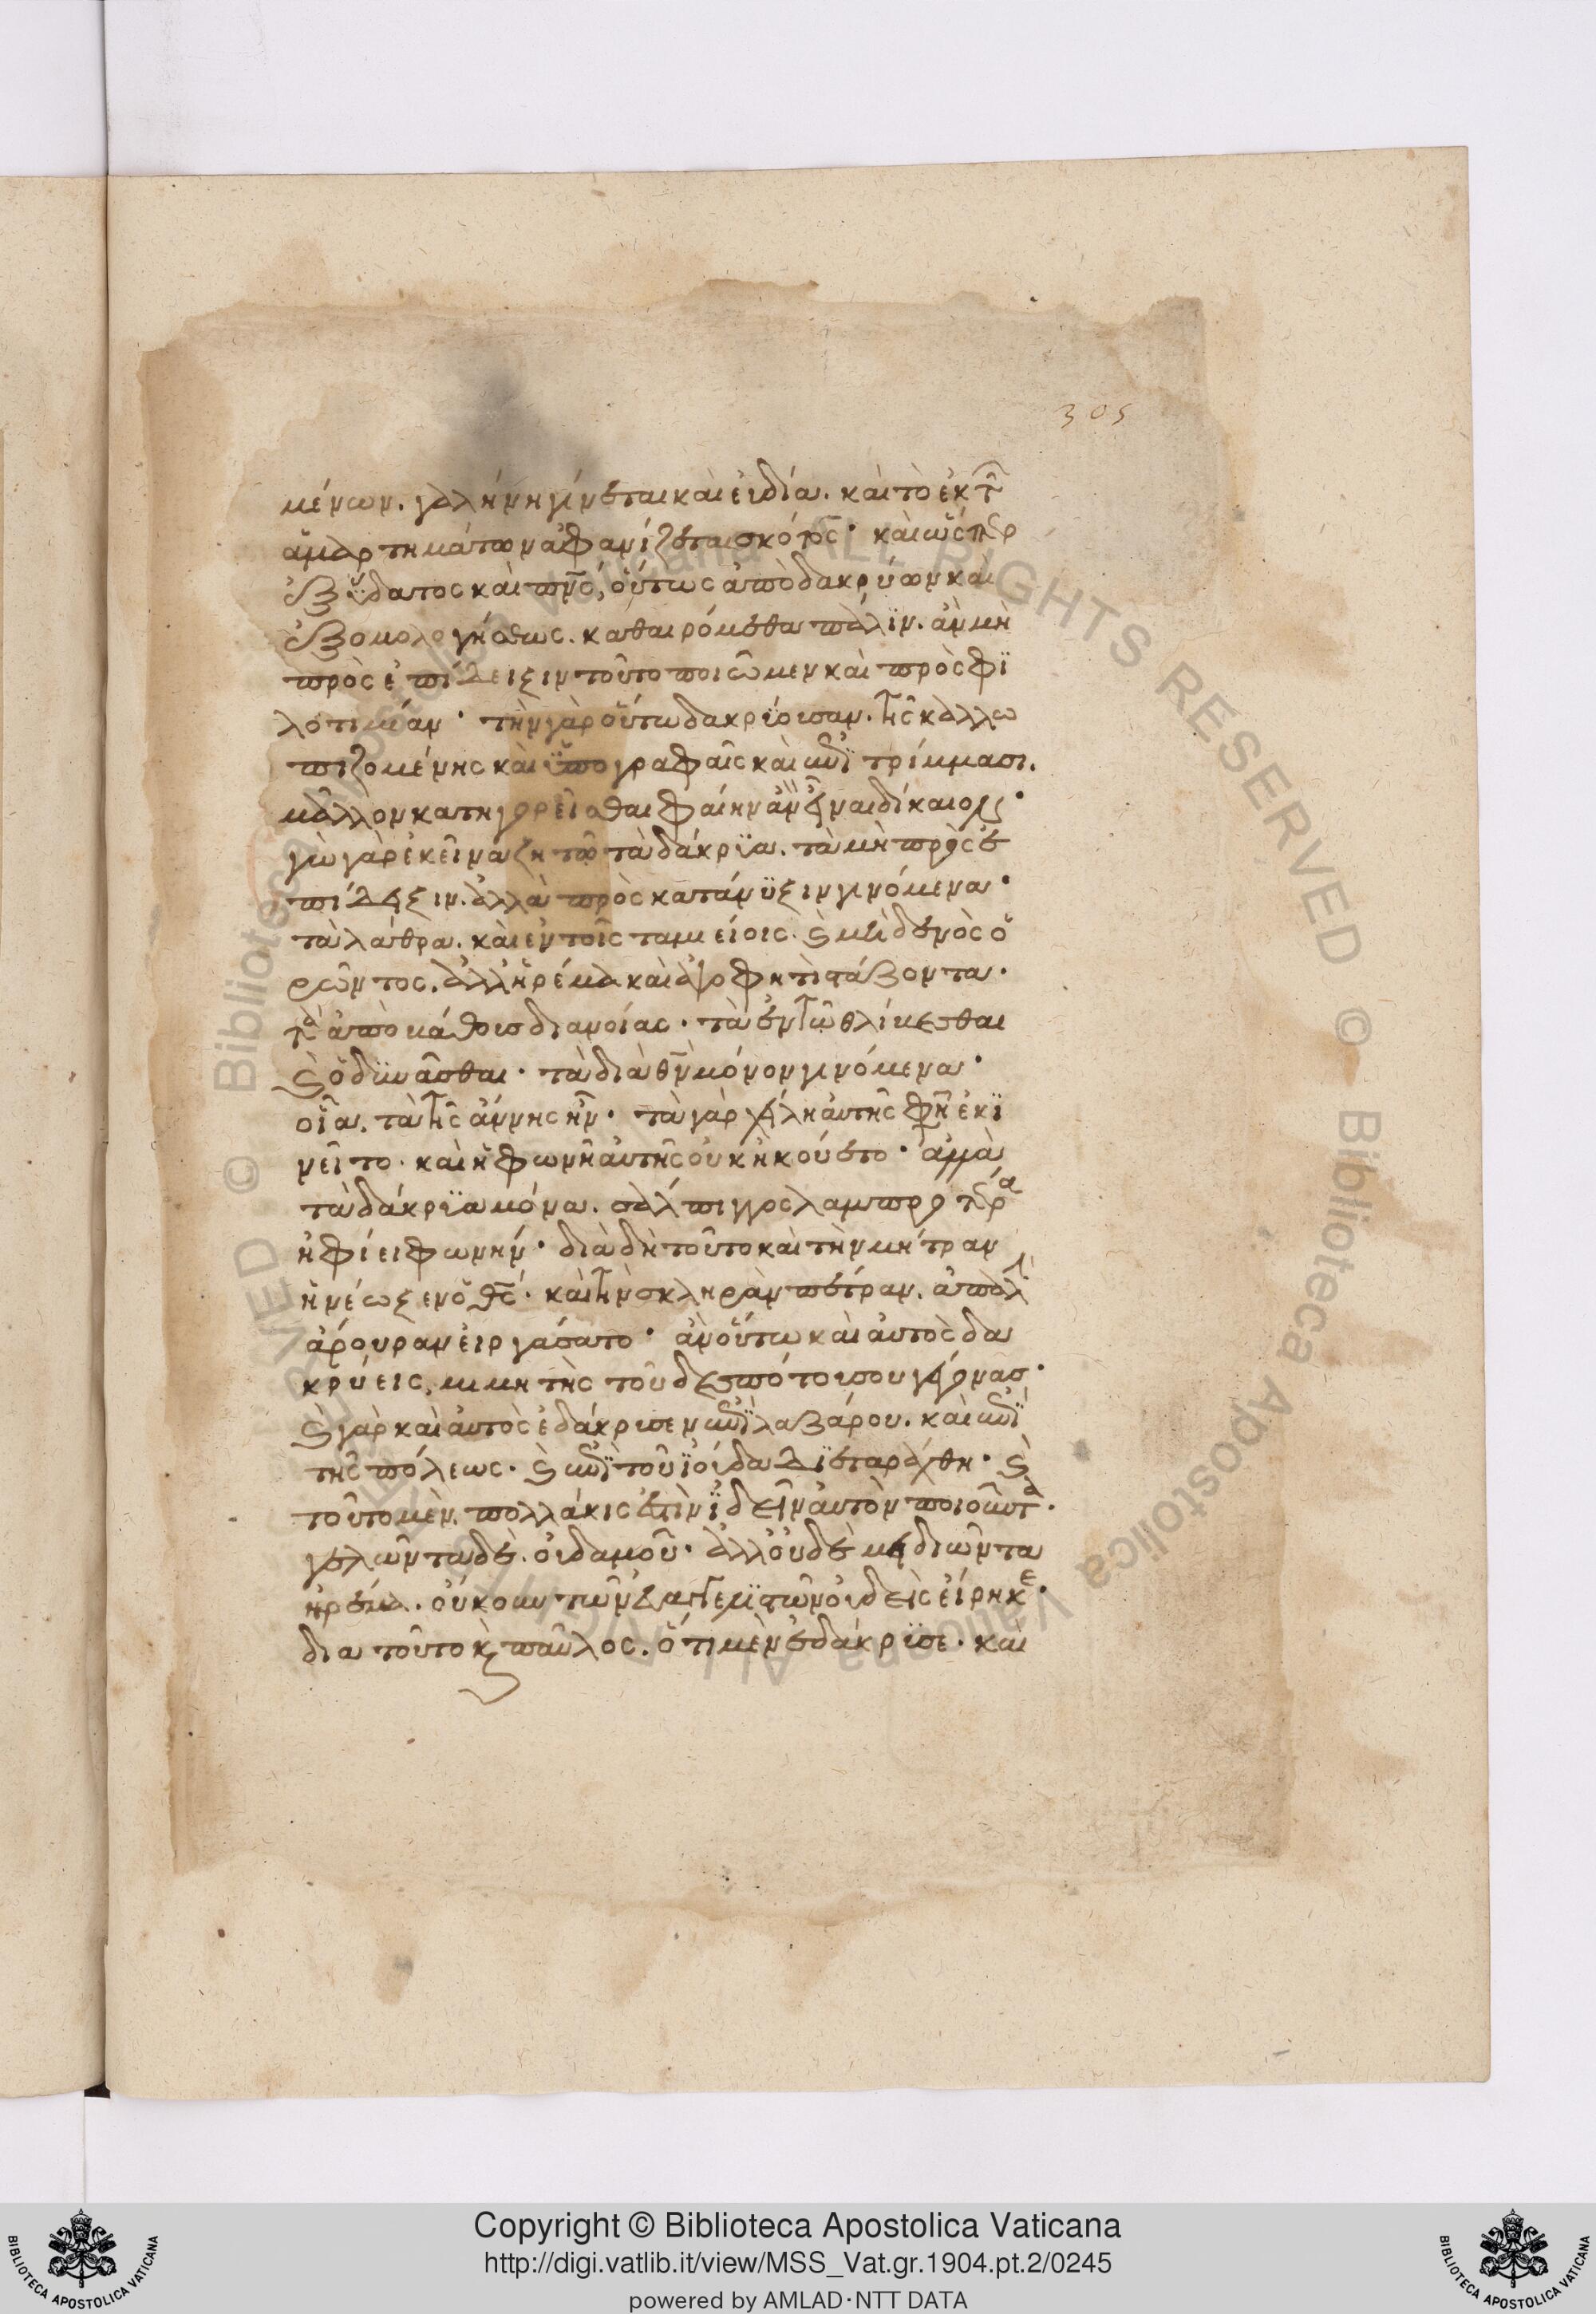 305
μένων. γαλήνη γίνεται καὶ εὐδία. καὶ τὸ ἐκ τ̑
ἁμαρτημάτων ἀφανίζεται σκότος· καὶ ὥσπερ
ἐξ ὕδατος καὶ πν̅ς, οὕτως ἀπὸ δακρύων καὶ
ἐξομολογήσεως. καθαιρόμεθα πάλϊν. ἀν μὴ
πρὸς ἐπίδειξιν τοῦτο ποιῶμεν καὶ πρὸς φϊ
λοτιμίαν· τὴν γὰρ οὕτω δακρύουσαν. τῆς καλλω
πιζομένης καὶ ϋπογραφαῖς καὶ ἐπϊτρίμμασι.
μᾶλλον κατηγορεῖσθαι φαίην ἂν εἶναι δίκαιον·
γὼ γὰρ ἐκεῖνα ζητῶ τὰ δάκρϋα. τὰ μὴ πρὸς ἐ
πίδειξιν. ἀλλὰ πρὸς κατάνϋξιν γινόμενα·
τὰ λάθρα. καὶ ἐν τοῖς ταμείοις. ϗ μηδενὸς ὁ
ρῶντος. ἀλλ' ἠρέμα καὶ ἀψοφητὶ στάζοντα.
τὰ ἀπὸ βάθους διανοίας· τὰ ἐν τῶ θλίβεσθαι
ϗ ὀδϋνᾶσθαι· τὰ διὰ θν̅ μόνον γινόμενα·
οἷα. τὰ τῆς ἄννης ἦν· τὰ γὰρ χείλη αὐτῆς φη̅ ἐκϊ
νεῖτο. καὶ ἡ φωνὴ αὐτῆς οὐκ ἠκούετο· ἀλλὰ
τὰ δάκρϋα μόνα. σάλπιγγος λαμπροτέρα
ἠφίει φωνήν· διὰ δὴ τοῦτο καὶ τὴν μήτραν
ἠνέωξεν ὁ θς̅· καὶ τὴν σκληρὰν πέτραν. ἁπαλ
ἄρουραν εἰργάσατο· ἀν οὕτω καὶ αὐτὸς δα
κρύεις, μιμητὴς τοῦ δεσπότου σου γέγονας·
ϗ γὰρ καὶ αὐτὸς ἐδάκρυσεν ἐπϊ λαζάρου. καὶ ἐπϊ
τῆς πόλεως· ϗ ἐπϊ τοῦ ϊούδα διεταράχθη· ϗ
τοῦτο μὲν. πολλάκις ἐστὶν ϊδεῖν αὐτὸν ποιοῦντα.
γελῶντα δὲ. οὐδαμοῦ· ἀλλ' οὐδὲ μειδιῶντα
ἠρέμα. οὔκουν τῶν εὐαγγελϊστῶν οὐδεὶς εἴρηκε·
δια τοῦτο ϗ παῦλος. ὅτι μὲν ἐδάκρϋσε. καὶ
Copyright © Biblioteca Apostolica Vaticana
http://digi.vatlib.it/view/MSS_Vat.gr.1904.pt.2/0245
powered by AMLAD·NTT DATA